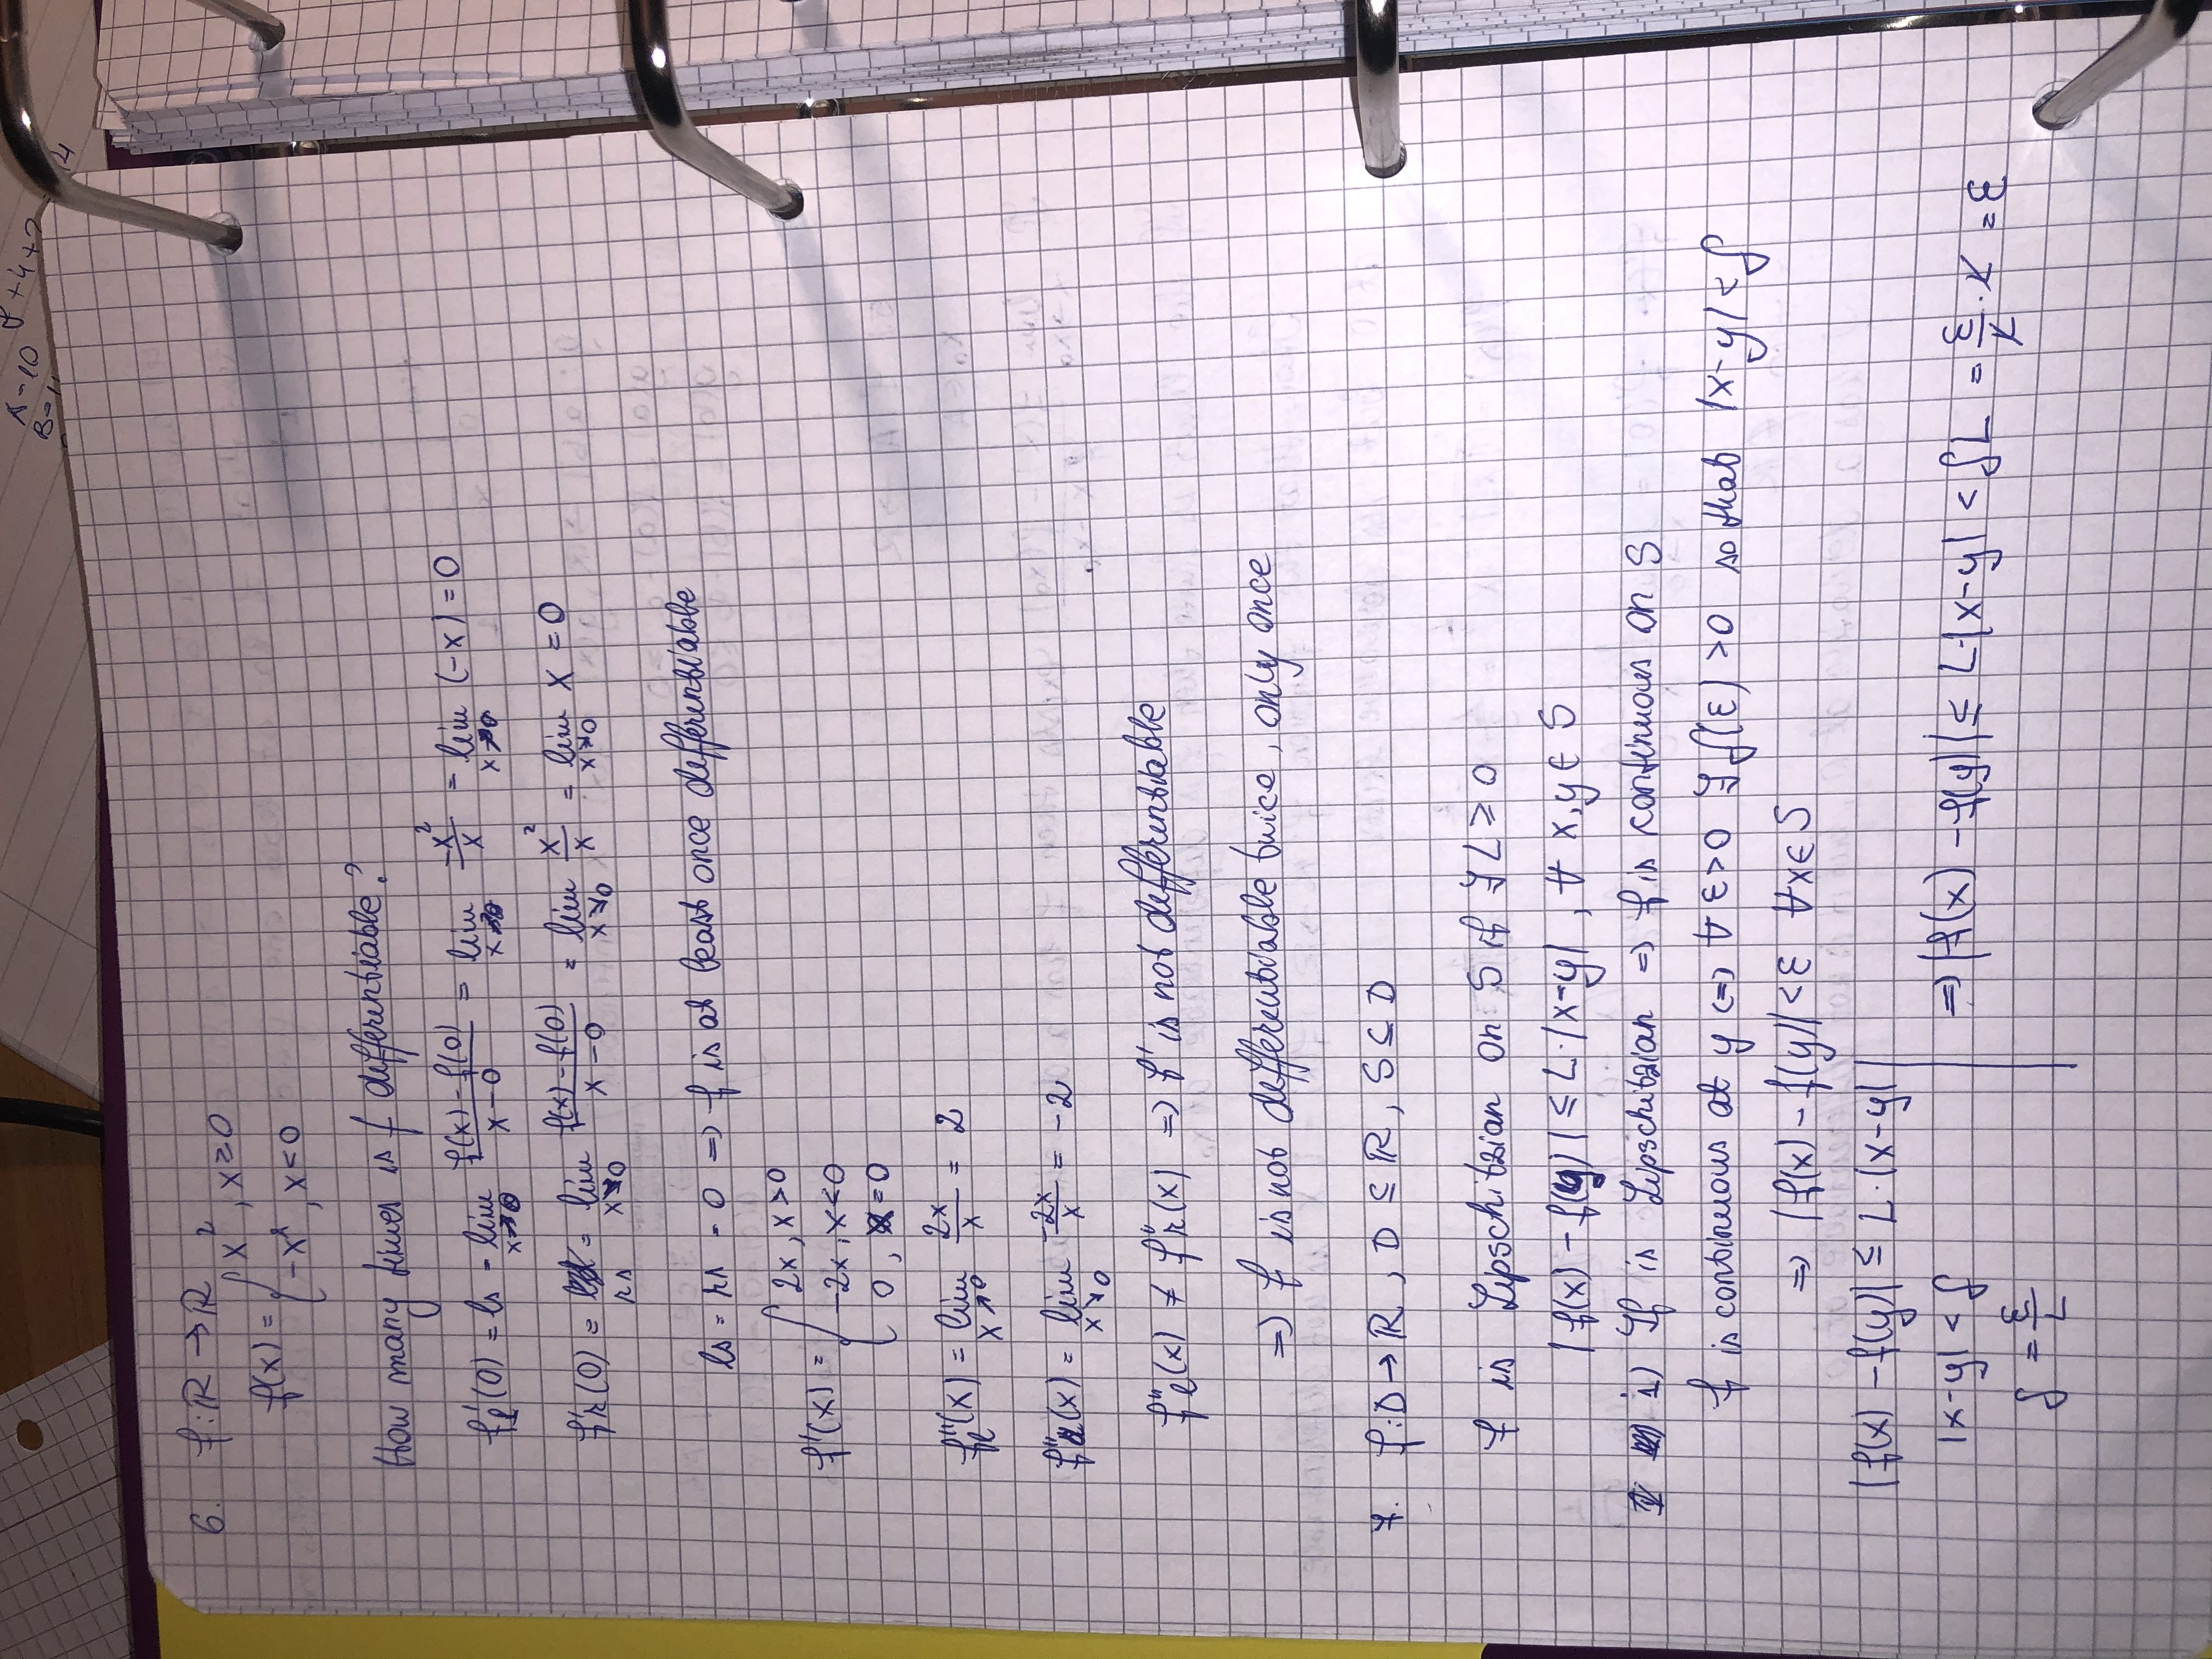 A=10 8+4+2
14
6. f:ℝ→ℝ
f(x) = { x², x≥0
-x², x<0
How many times is f differentiable?
f'ₗ(0) = ls = lim x↗0 (f(x)-f(0))/(x-0) = lim x↗0 -x²/x = lim x↗0 (-x) = 0
f'ᵣ(0) = rs = lim x↘0 (f(x)-f(0))/(x-0) = lim x↘0 x²/x = lim x↘0 x = 0
ls = rs = 0 ⇒ f is at least once differentiable
f'(x) = { 2x, x>0
-2x, x<0
0, x=0
f''ₗ(x) = lim x↗0 2x/x = 2
f''ᵣ(x) = lim x↘0 -2x/x = -2
f''ₗ(x) ≠ f''ᵣ(x) ⇒ f' is not differentiable
⇒ f is not differentiable twice, only once
7. f:D→ℝ, D⊆ℝ, S⊆D
f is Lipschitzian on S if ∃ L≥0
|f(x)-f(y)| ≤ L·|x-y|, ∀ x,y∈S
i) If is Lipschitzian ⇒ f is continuous on S
f is continuous at y ⇔ ∀ε>0 ∃δ(ε)>0 so that |x-y|<δ
⇒ |f(x)-f(y)|<ε ∀x∈S
|f(x)-f(y)| ≤ L·|x-y|
|x-y|<δ
δ = ε/L
⇒ |f(x)-f(y)| ≤ L·|x-y| < δL = ε/L·L = ε